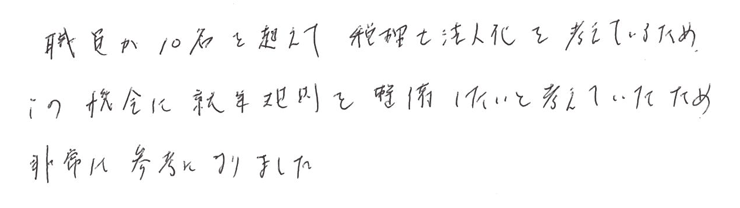 職員が10名を超えて税理士法人化を考えているため
この機会に就業規則を整備したいと考えていたため
非常に参考になりました